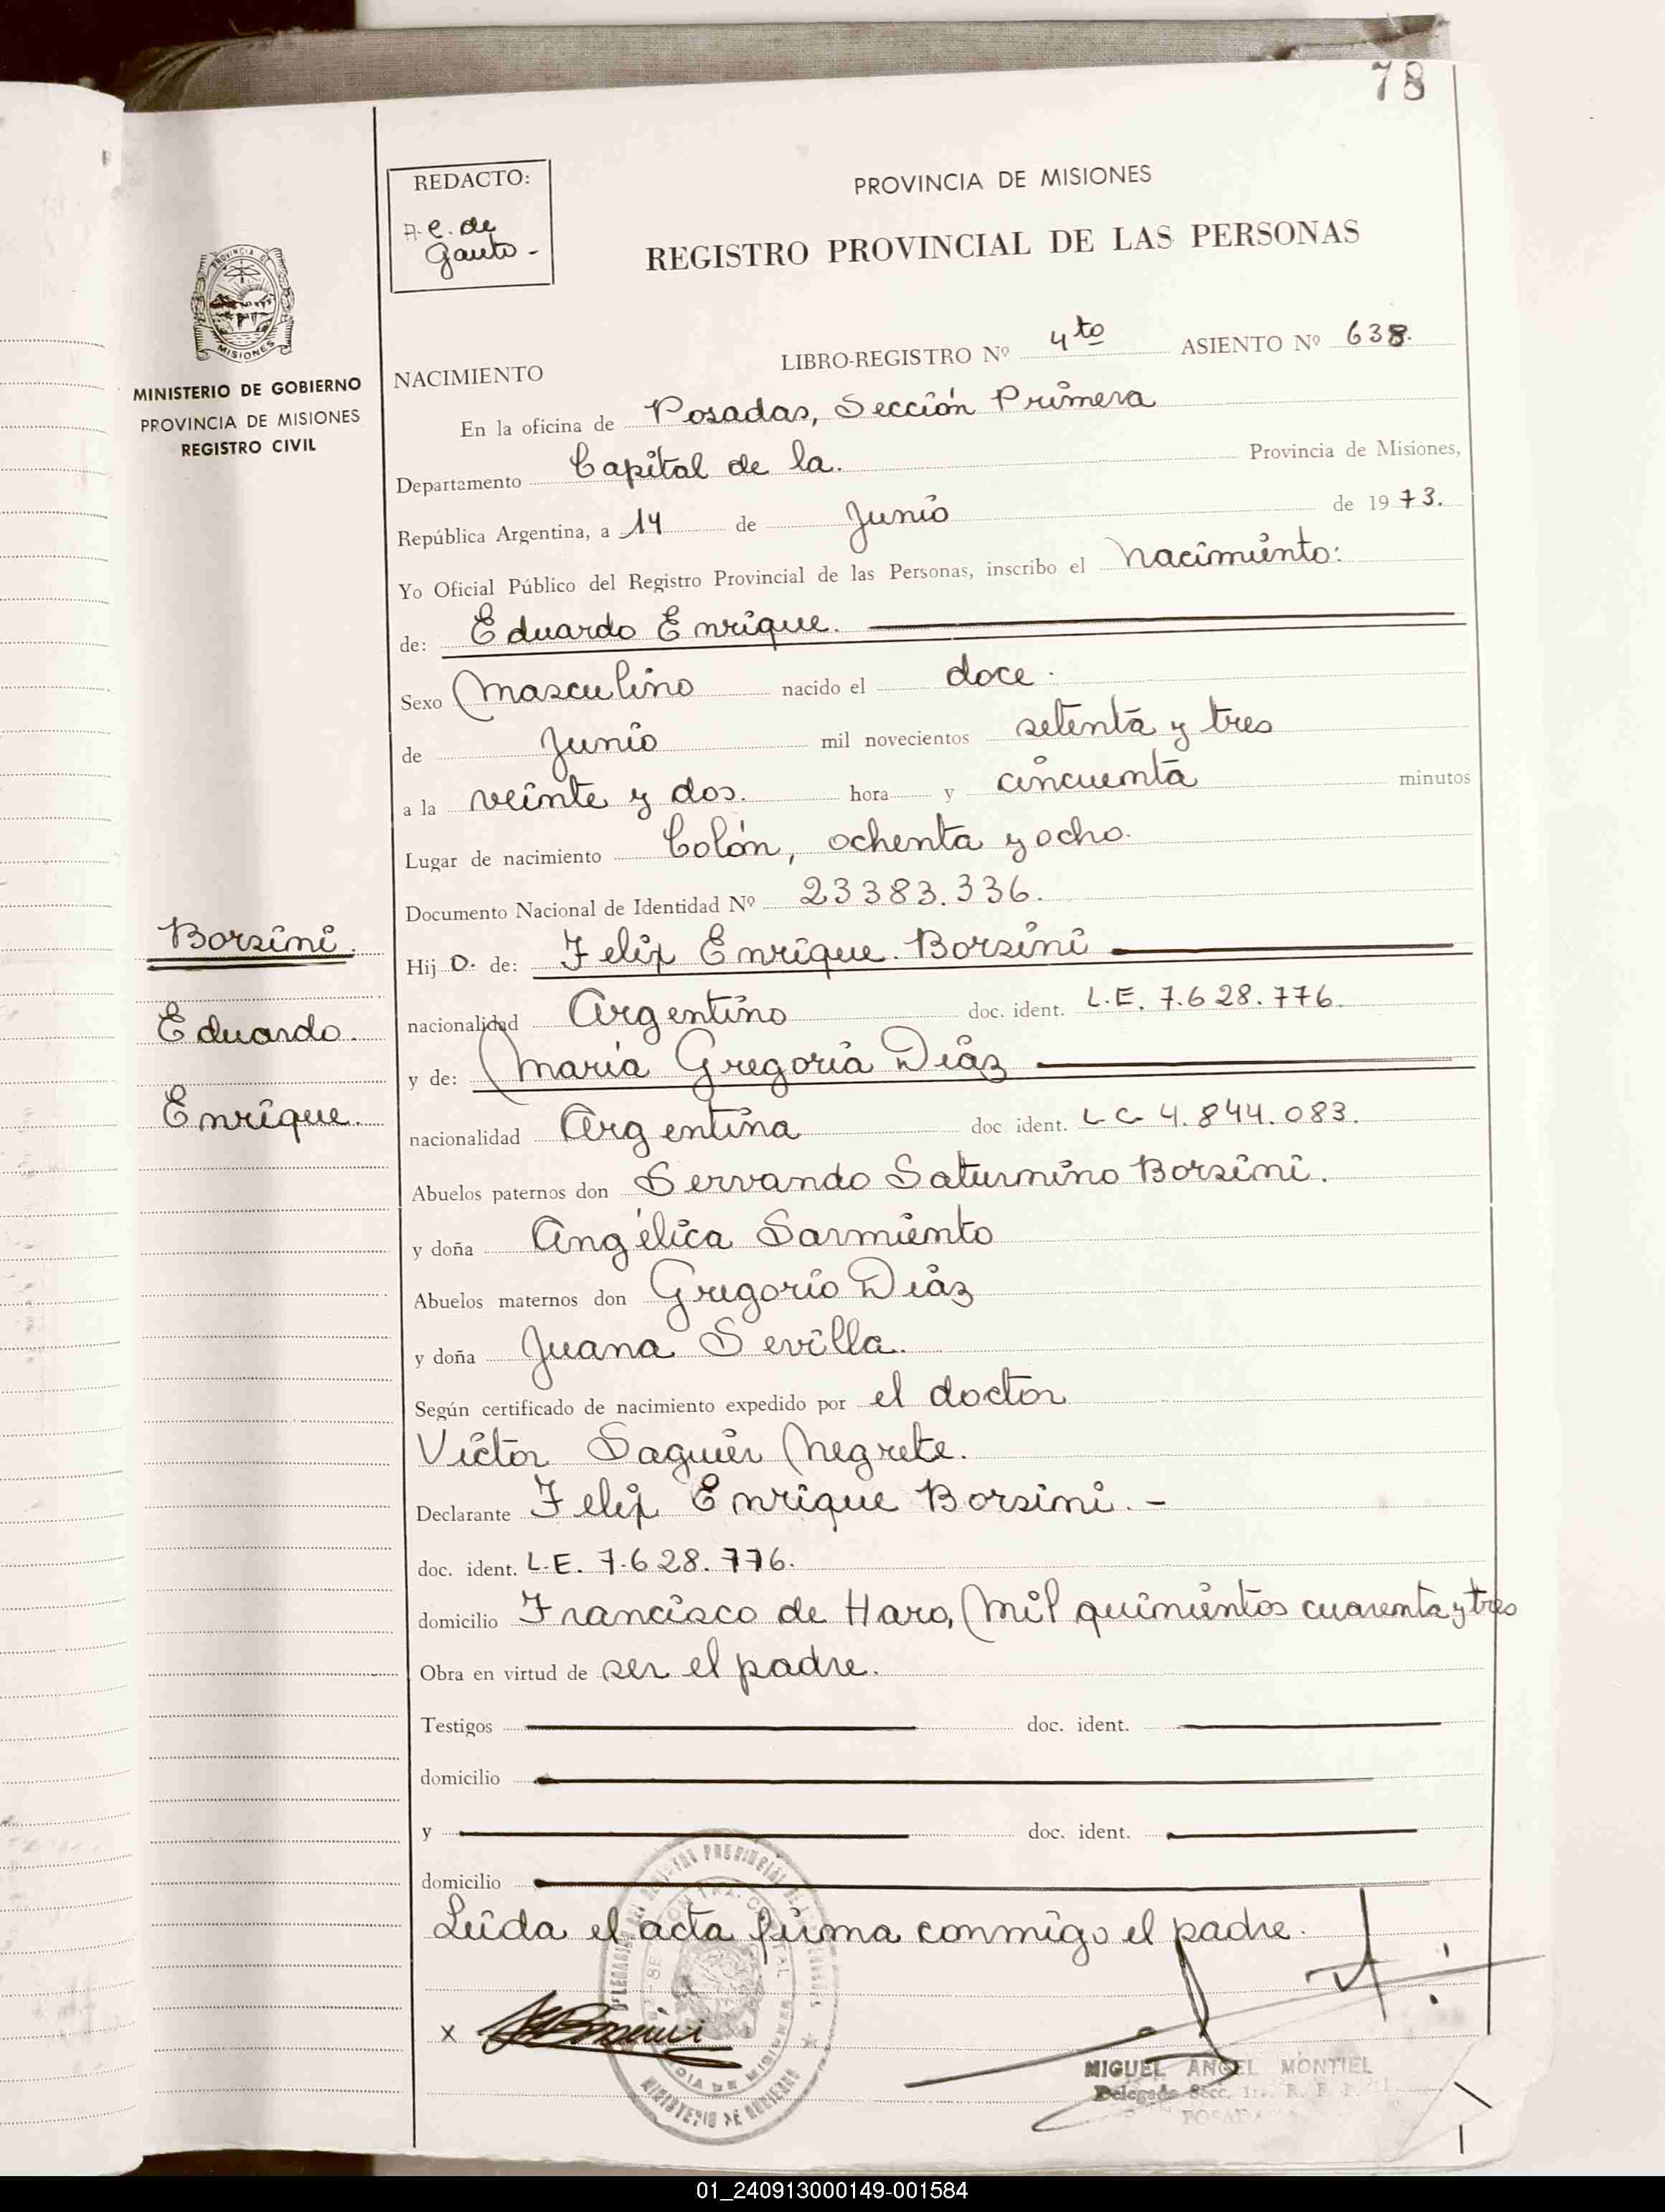 78
REDACTO:
A. C. de
Gauto -
PROVINCIA DE MISIONES
REGISTRO PROVINCIAL DE LAS PERSONAS
PROVINCIA DE
MISIONES
MINISTERIO DE GOBIERNO
PROVINCIA DE MISIONES
REGISTRO CIVIL
LIBRO-REGISTRO Nº 4to ASIENTO Nº 638.
NACIMIENTO
En la oficina de Posadas, Sección Primera
Departamento Capital de la. Provincia de Misiones,
República Argentina, a 14 de Junio de 1973.
Yo Oficial Público del Registro Provincial de las Personas, inscribo el nacimiento:
de: Eduardo Enrique.
Sexo Masculino nacido el doce.
de Junio mil novecientos setenta y tres
a la veinte y dos. hora y cincuenta minutos
Lugar de nacimiento Colón, ochenta y ocho.
Documento Nacional de Identidad Nº 23383.336.
Borsini.
Eduardo.
Enrique.
Hij o. de: Felix Enrique. Borsini
nacionalidad Argentino doc. ident. L.E. 7.628.776.
y de: María Gregoria Diaz
nacionalidad Argentina doc ident. L C 4.844.083.
Abuelos paternos don Servando Saturnino Borsini.
y doña Angélica Sarmiento
Abuelos maternos don Gregorio Diaz
y doña Juana Sevilla.
Según certificado de nacimiento expedido por el doctor
Victor Saguier Negrete.
Declarante Felix Enrique Borsini. -
doc. ident. L.E. 7.628.776.
domicilio Francisco de Haro, mil quinientos cuarenta y tres
Obra en virtud de ser el padre.
Testigos doc. ident.
domicilio
y doc. ident.
domicilio
Leida el acta firma conmigo el padre.
x Borsini
MINISTERIO DE GOBIERNO
MIGUEL ANGEL MONTIEL
Delegado Secc. 1ra. R. P. P.
POSADAS
01_240913000149-001584